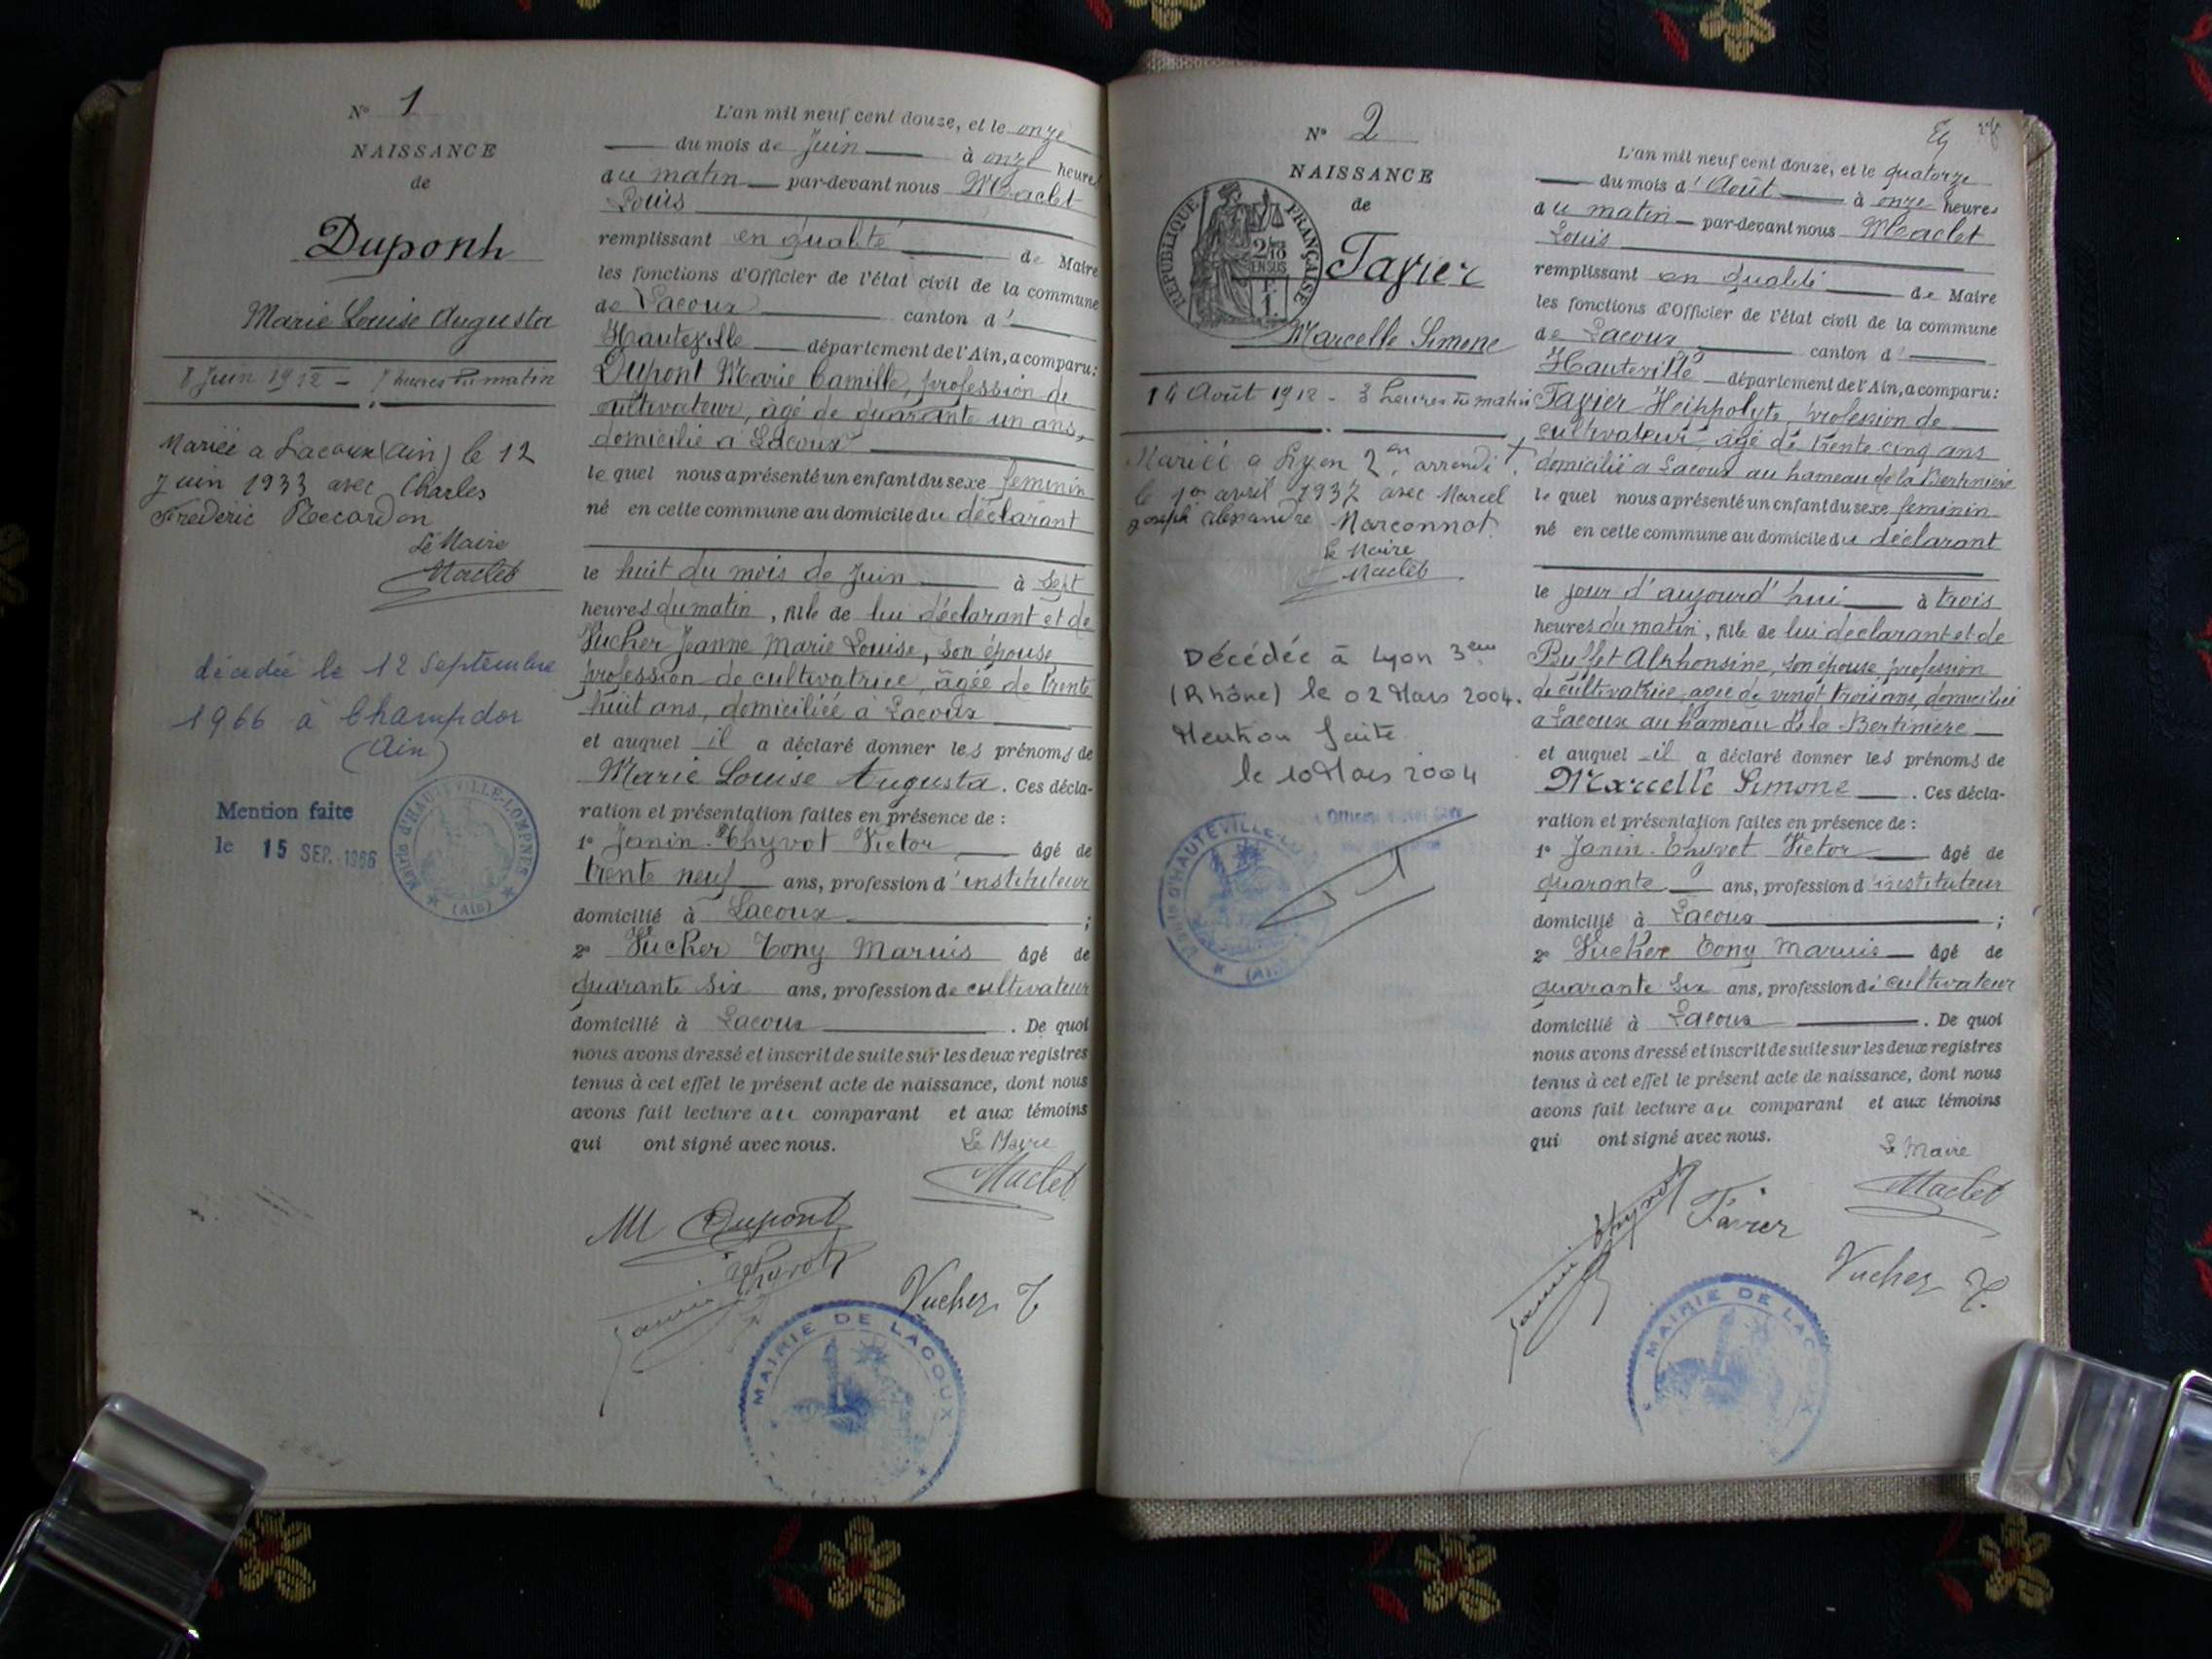 N° 1
NAISSANCE
de
Dupont
Marie Louise Augusta
8 Juin 1912 - 7 heures du matin
Mariée a Lacoux (Ain) le 12
Juin 1933 avec Charles
Frédéric Recordon
Le Maire
Maclet
décédée le 12 Septembre
1966 à Champdor
(Ain)
Mention faite
le 15 SEP. 1966
Mairie d'HAUTEVILLE-LOMPNES
(Ain)
L'an mil neuf cent douze, et le onze
du mois de Juin à onze heures
du matin par-devant nous Maclet
Louis
remplissant en qualité de Maire
les fonctions d'Officier de l'état civil de la commune
de Lacoux canton d'
Hauteville département de l'Ain, a comparu:
Dupont Marie Camille, profession de
cultivateur, âgé de quarante un ans,
domicilié à Lacoux
le quel nous a présenté un enfant du sexe feminin
né en cette commune au domicile du déclarant
le huit du mois de Juin à sept
heures du matin, fille de lui déclarant et de
Vucher Jeanne Marie Louise, son épouse
profession de cultivatrice, âgée de trente
huit ans, domiciliée à Lacoux
et auquel il a déclaré donner les prénoms de
Marie Louise Augusta. Ces décla-
ration et présentation faites en présence de :
1° Janin-Thyvot Victor âgé de
trente neuf ans, profession d'instituteur
domicilié à Lacoux ;
2° Vucher Tony Marius âgé de
quarante six ans, profession de cultivateur
domicilié à Lacoux . De quoi
nous avons dressé et inscrit de suite sur les deux registres
tenus à cet effet le présent acte de naissance, dont nous
avons fait lecture au comparant et aux témoins
qui ont signé avec nous.
Le Maire
Maclet
M Dupont
Janin Thyvot
Vucher T
MAIRIE DE LACOUX
N° 2
NAISSANCE
de
RÉPUBLIQUE FRANÇAISE
2/10
EN SUS
F.
1.
Favier
Marcelle Simone
14 Août 1912 - 3 heures du matin
Mariée a Lyon 2em arrondt.
le 1er avril 1937 avec Marcel
Joseph Alexandre Marconnot.
Le Maire
Maclet
Décédée à Lyon 3eme
(Rhône) le 02 Mars 2004.
Mention faite
le 10 Mars 2004
Mairie d'HAUTEVILLE-
(Ain)
L'an mil neuf cent douze, et le quatorze
du mois d'Août à onze heures
du matin par-devant nous Maclet
Louis
remplissant en qualité de Maire
les fonctions d'Officier de l'état civil de la commune
de Lacoux canton d'
Hauteville département de l'Ain, a comparu:
Favier Heippolyte, profession de
cultivateur, âgé de trente cinq ans
domicilié a Lacoux au hameau de la Bertiniere
le quel nous a présenté un enfant du sexe feminin
né en cette commune au domicile du déclarant
le jour d'aujourd'hui à trois
heures du matin, fille de lui déclarant et de
Buffet Alphonsine, son épouse profession
de cultivatrice agée de vingt trois ans, domiciliée
a Lacoux au hameau de la Bertiniere
et auquel il a déclaré donner les prénoms de
Marcelle Simone . Ces décla-
ration et présentation faites en présence de :
1° Janin-Thyvot Victor âgé de
quarante ans, profession d'instituteur
domicilié à Lacoux ;
2° Vucher Tony Marius âgé de
quarante six ans, profession de cultivateur
domicilié à Lacoux . De quoi
nous avons dressé et inscrit de suite sur les deux registres
tenus à cet effet le présent acte de naissance, dont nous
avons fait lecture au comparant et aux témoins
qui ont signé avec nous.
Le Maire
Maclet
Janin Thyvot
Favier
Vucher T.
MAIRIE DE LACOUX